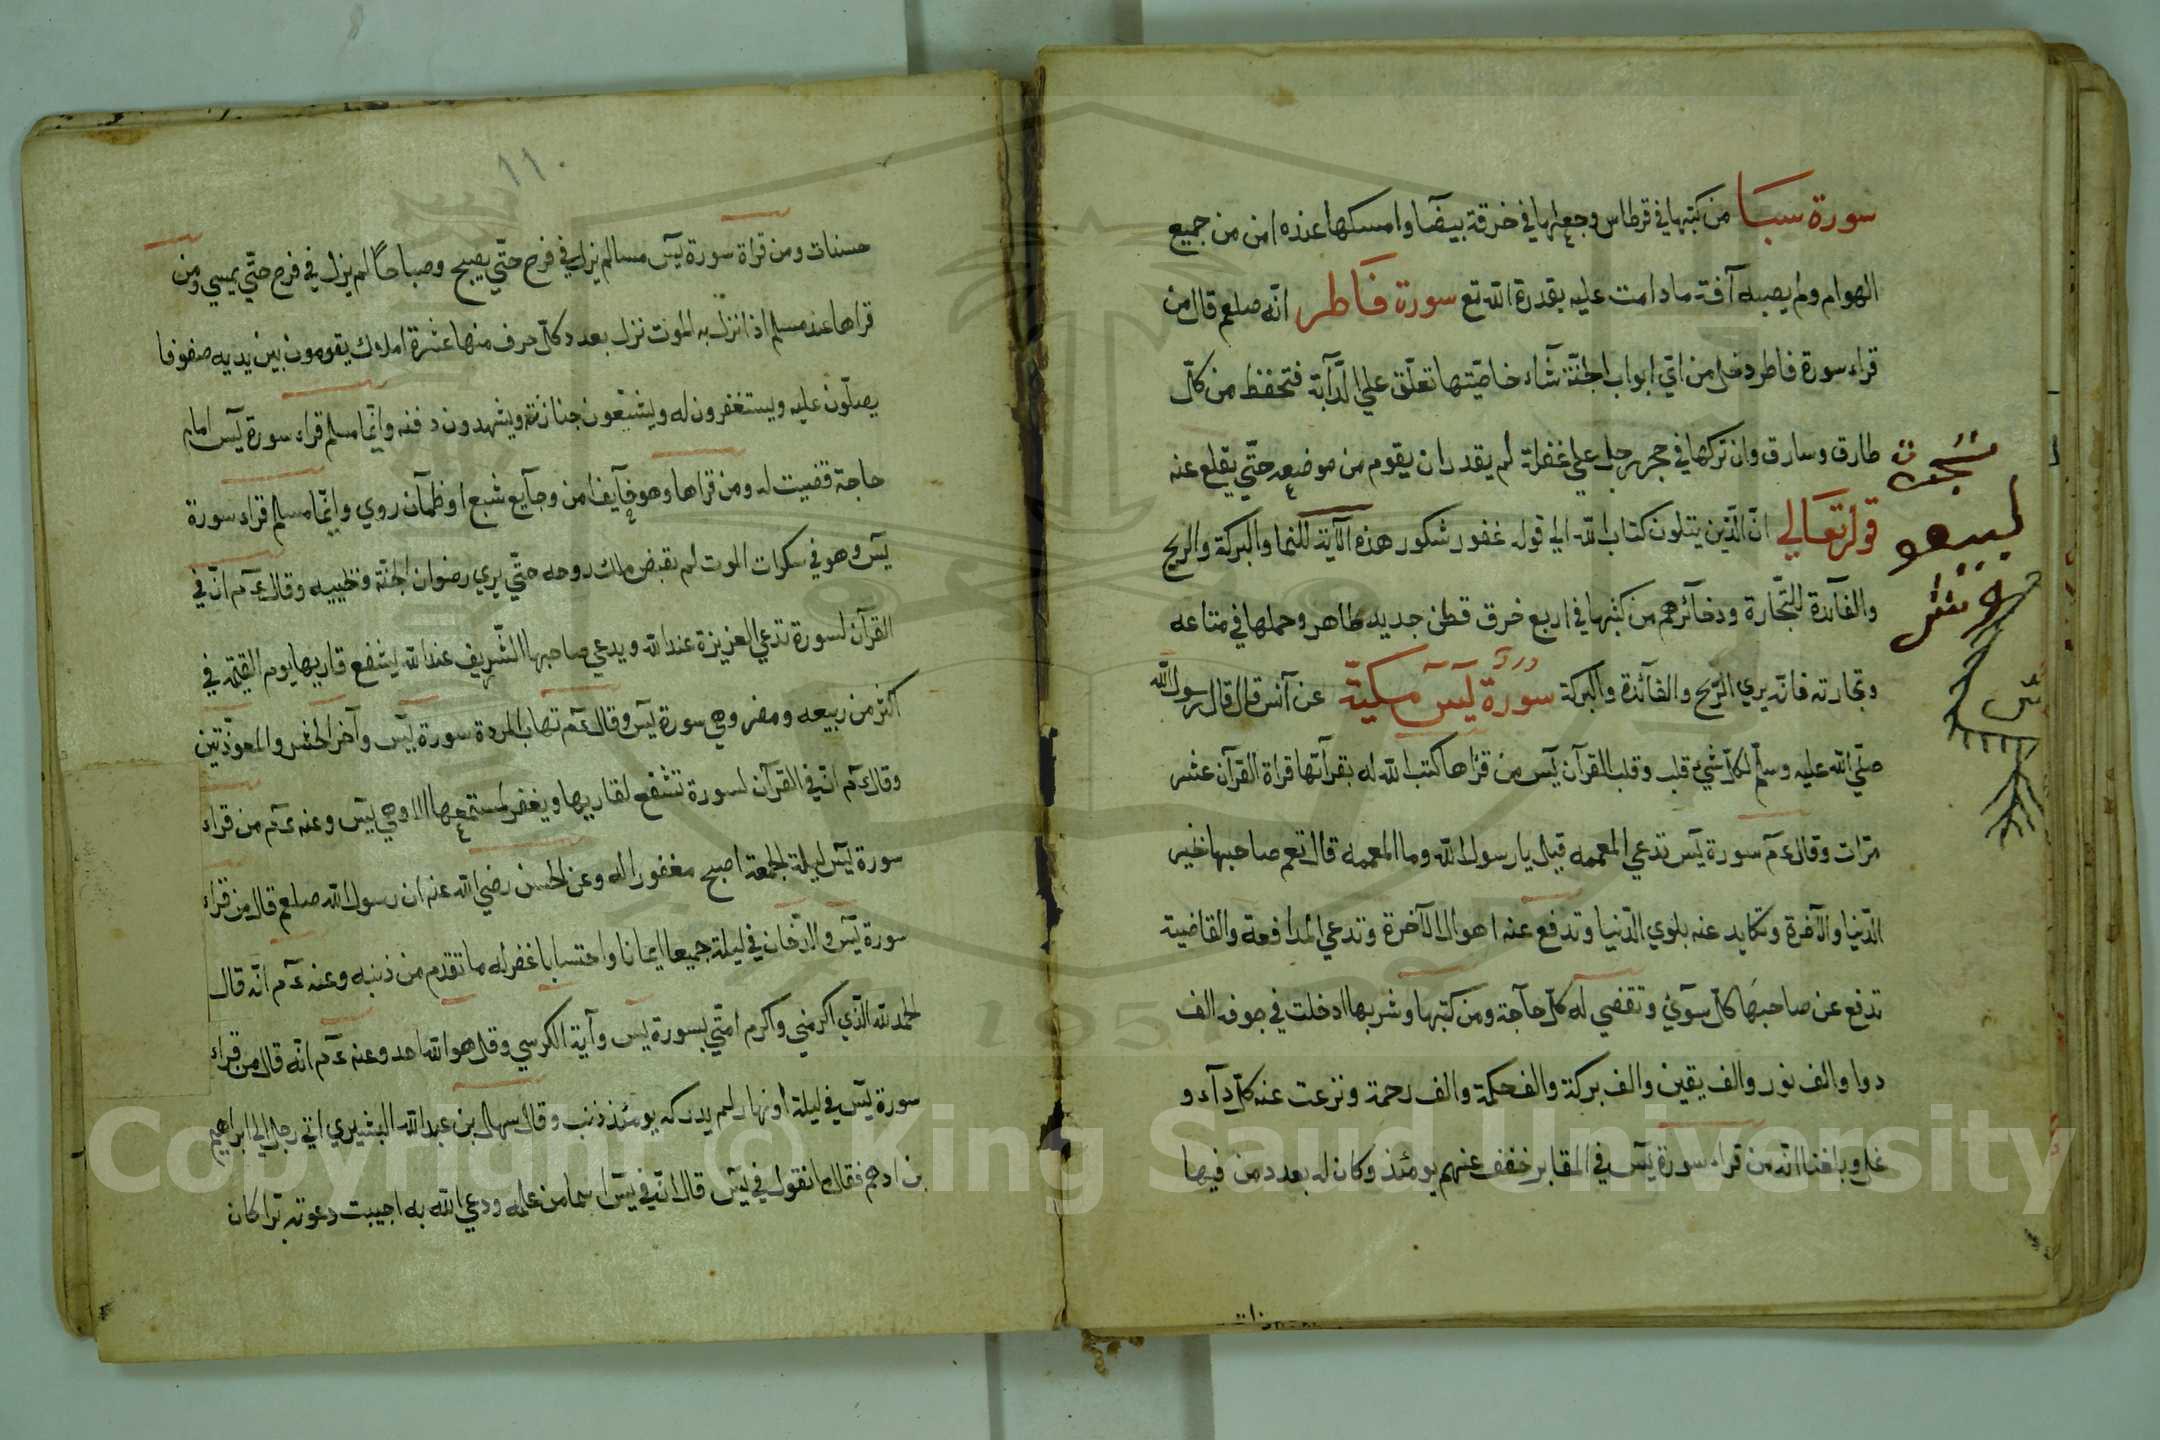 سورة سبا من كتبها في قرطاس وجعلها في خرقة بيضا وامسكها عنده امن من جميع
الهوام ولم يصبه آفة ما دامت عليه بقدرة الله تع سورة فاطر انه صلعم قال من
قراء سورة فاطر دخل من اي ابواب الجنة شآء خاصيتها تعلق علي الدآبة فتحفظ من كل
طارق وسارق وان تركها في حجر رجل علي غفلة لم يقدر ان يقوم من موضعه حتي يقلع عنه
قوله تعالي ان الذين يتلون كتاب الله الي قوله غفور شكور هذه الآية للنما والبركة والربح
والفآئدة للتجارة وذخائرهم من كتبها في اربع خرق قطن جديد طاهر وحملها في متاعه
وتجارته فانه يري الربح والفآئدة والبركة سورة يس مكية عن آنس قال قال رسول الله
صلي الله عليه وسلم لكل شيء قلب وقلب القرآن يس من قراها كتب الله له بقرآتها قراة القرآن عشر
مرات وقال ءم سورة يس تدعي المعممه قيل يا رسول الله وما المعممه قال تعم صاحبها خير
الدنيا والآخرة وتكابد عنه بلوي الدنيا وتدفع عنه اهوال الآخرة وتدعي المدافعة والقاضية
تدفع عن صاحبها كل سوء وتقضي له كل حآجة ومن كتبها وشربها ادخلت في جوفه الف
دوا والف نور والف يقين والف بركة والف حكمة والف رحمة ونزعت عنه كل دآء و
غل وبلغنا انه من قراء سورة يس في المقابر خفف عنهم يومئذ وكان له بعدد من فيها
١١٠
حسنات ومن قراة سورة يس مسا لم يزل في فرح حتي يصبح وصباحا لم يزل في فرح حتي يمسي ومن
قراها عند مسلم اذا نزل به الموت نزل بعدد كل حرف منها عشرة املاك يقومون بين يديه صفوفا
يصلون عليه ويستغفرون له ويشيعون جنازته ويشهدون دفنه وايما مسلم قراء سورة يس امام
حاجة قضيت له ومن قراها وهو خآيف امن وجآيع شبع او ظمآن روي وايما مسلم قراء سورة
يس وهو في سكرات الموت لم يقبض ملك روحه حتي يري رضوان الجنة وقال ءم ان في
القرآن لسورة تدعي العزيزة عند الله ويدعي صاحبها الشريف عند الله يشفع قاريها يوم القيمة في
اكثر من ربيعه ومضر وهي سورة يس وقال ءم تهاب المردة سورة يس وآخر الحشر والمعوذتين
وقال ءم ان في القرآن لسورة تشفع لقاريها ويغفر لمستمعها الا وهي يس وعنه ءم من قراء
سورة يس ليلة الجمعة اصبح مغفورا له وعن الحسن رضي الله عنه ان رسول الله صلعم قال من قراء
سورة يس والدخان في ليلة جميعا ايمانا واحتسابا غفر له ما تقدم من ذنبه وعنه ءم انه قال
الحمد لله الذي اكرمني واكرم امتي بسورة يس وآية الكرسي وقل هو الله احد وعنه ءم انه قال من قراء
سورة يس في ليلة او نهار لم يدركه يومئذ ذنب وقال سهل بن عبد الله اتي رجل الي ابراهيم
بن ادهم فقال ما تقول في يس قال ان في يس اسما من علمه ودعي الله به اجيبت دعوته برا كان
Copyright © King Saud University
1957